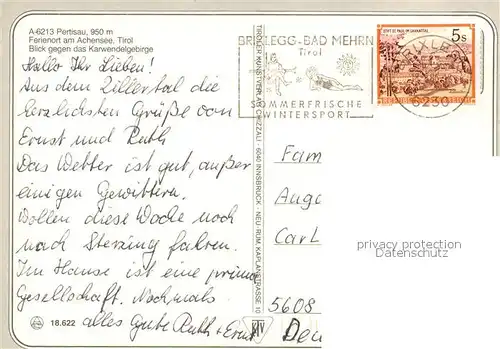 A-6213 Pertisau, 950 m
Ferienort am Achensee, Tirol
Blick gegen das Karwendelgebirge
Hallo Ihr Lieben!
Aus dem Zillertal die
herzlichsten Grüße von
Ernst und Ruth
Das Wetter ist gut, außer
einigen Gewittern.
Wollen diese Woche noch
nach Sterzing fahren.
Im Hause ist eine prima
Gesellschaft. Nochmals
alles Gute Ruth + Ernst
18.622
TIROLER KUNSTVERLAG CHIZZALI · 6040 INNSBRUCK - NEU-RUM, KAPLANSTRASSE 10
KTV
BRIXLEGG-BAD MEHRN
Tirol
SOMMERFRISCHE
WINTERSPORT
STIFT ST. PAUL IM LAVANTTAL
5s
REPUBLIK ÖSTERREICH
BRIXLEGG
6230
Fam
Auga
Carl
5608
Deu
privacy protection
Datenschutz